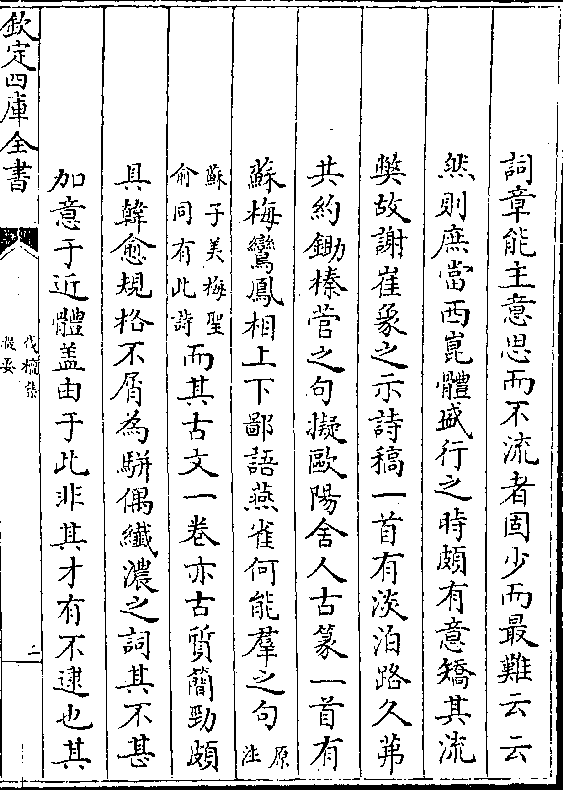 詞章能主意思而不流者固少而最難云云
然則庶當西崑體盛行之時頗有意矯其流
弊故謝崔象之示詩稿一首有淡泊路久茀
共約鋤榛菅之句擬歐陽舍人古篆一首有
蘇梅鸞鳳相上下鄙語燕雀何能羣之句原注
蘇子美梅聖俞同有此詩而其古文一卷亦古質簡勁頗
具韓愈規格不屑為駢偶纖濃之詞其不甚
加意于近體盖由于此非其才有不逮也其
欽定四庫全書
伐檀集
提要
二